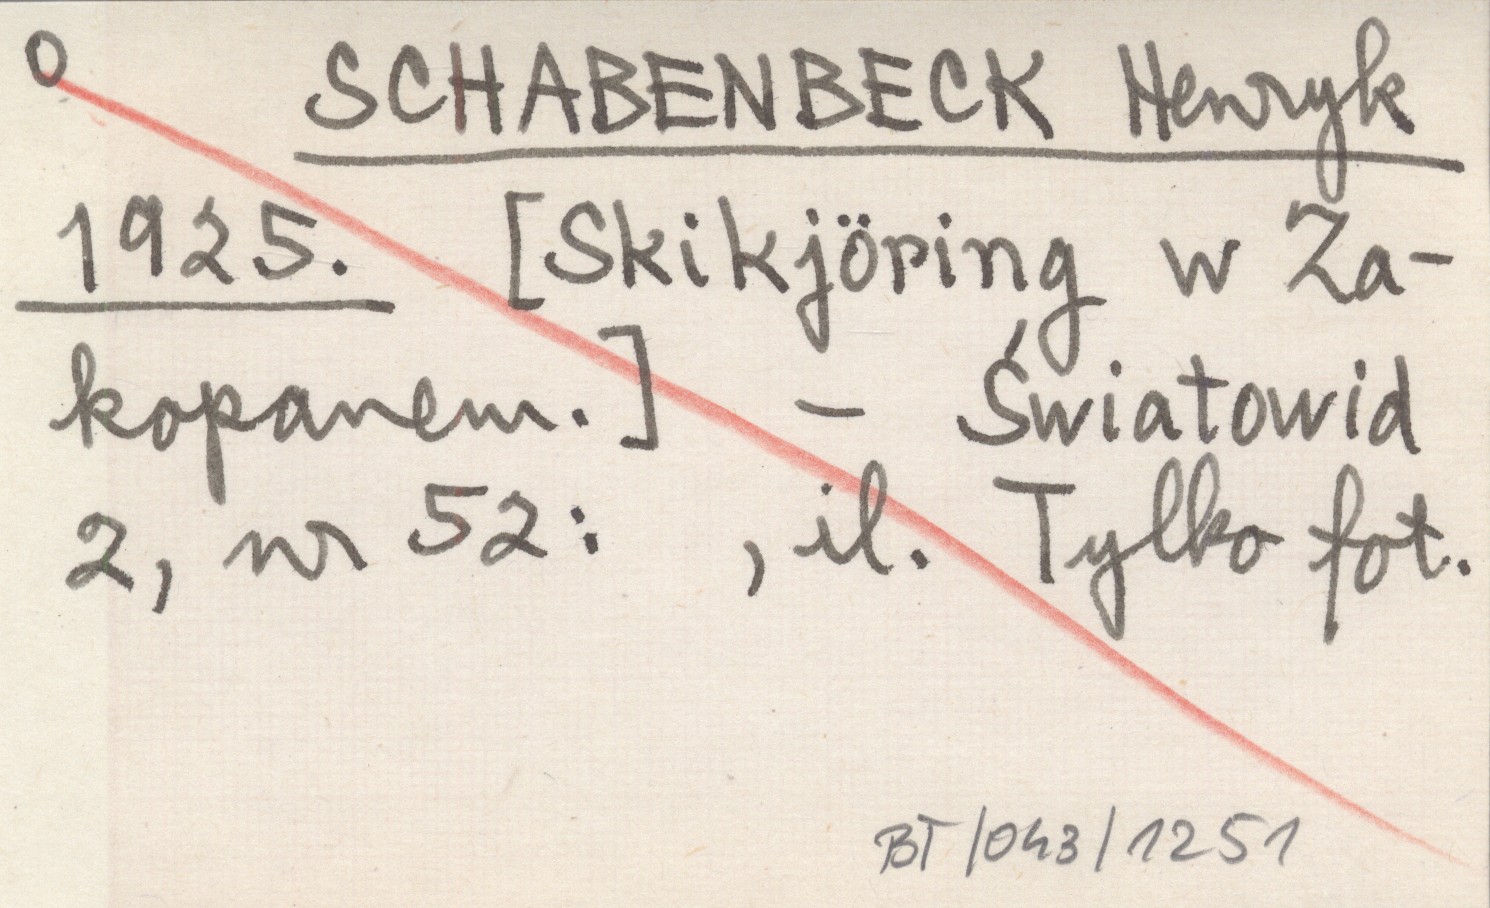 O SCHABENBECK Henryk
1925. [Skikjöring w Za-
kopanem.] - Światowid
2, nr 52: , il. Tylko fot.
BT/043/1251